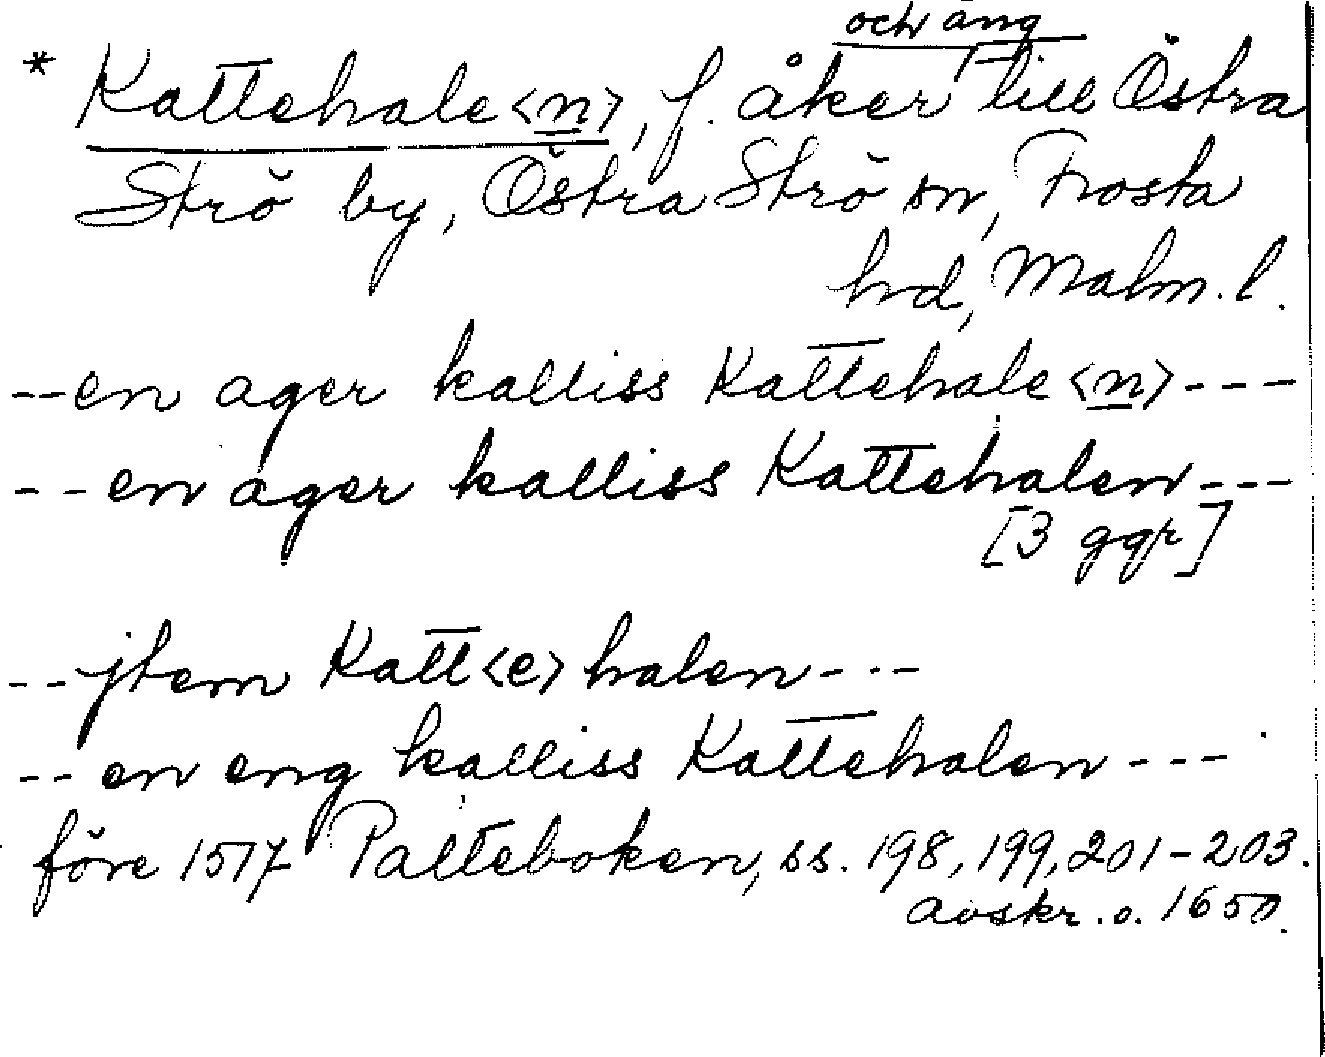 och äng
* Kattehale<n>, f. åker till Östra
Strö by, Östra Strö sn, Frosta
hd, Malm. l.
--en ager kalliss Kattehale<n>---
--en ager kalliss Kattehalen---
[3 ggr]
--jtem Katt<e>halen---
--en eng kalliss Kattehalen---
före 1517 Palteboken, ss. 198, 199, 201-203.
avskr. o. 1650.